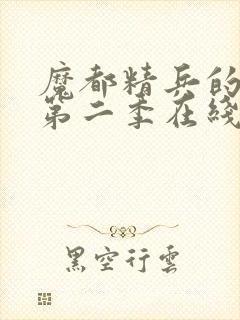 魔都精兵的
第二季在线
黑空行雲